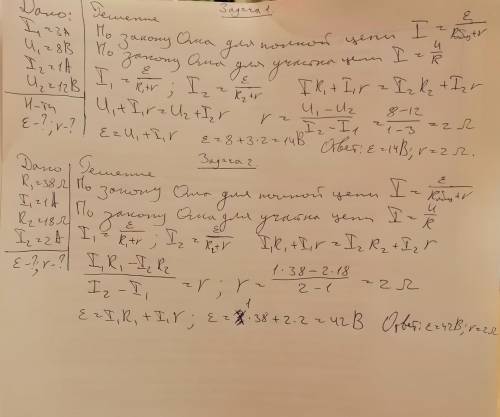 Задача 1
Дано:
I₁=3A
U₁=8B
I₂=1A
U₂=12B
Н-ти
ε-?; r-?
Решение
По закону Ома для полной цепи I = ε/(Rобщ+r)
По закону Ома для участка цепи I = U/R
I₁ = ε/(R₁+r) ; I₂ = ε/(R₂+r) I₁R₁+I₁r=I₂R₂+I₂r
U₁+I₁r=U₂+I₂r r = (U₁-U₂)/(I₂-I₁) = (8-12)/(1-3) = 2 Ω
ε=U₁+I₁r ε=8+3·2=14B Ответ: ε=14B; r=2Ω.
Задача 2
Дано
R₁=38Ω
I₁=1A
R₂=18Ω
I₂=2A
ε-?; r-?
Решение
По закону Ома для полной цепи I = ε/(Rобщ+r)
По закону Ома для участка цепи I = U/R
I₁ = ε/(R₁+r) ; I₂ = ε/(R₂+r) I₁R₁+I₁r=I₂R₂+I₂r
(I₁R₁-I₂R₂)/(I₂-I₁) = r ; r = (1·38-2·18)/(2-1) = 2 Ω
ε=I₁R₁+I₁r ; ε=1·38+2·2=42B Ответ: ε=42B; r=2Ω